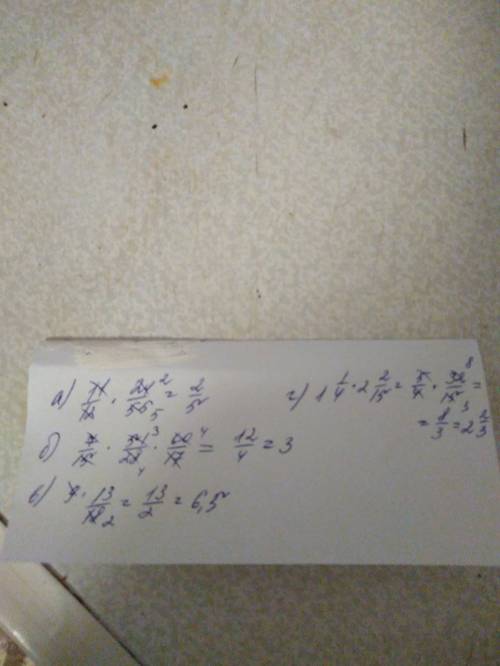 а) 11/12 · 24²/55₅ = 2/5
б) 7/15 · 51³/28₄ · 60⁴/17 = 12/4 = 3
в) 9 · 13/18₂ = 13/2 = 6,5
г) 1 1/4 · 2 2/15 = 5/4 · 32⁸/15₃ =
= 8/3 = 2 2/3